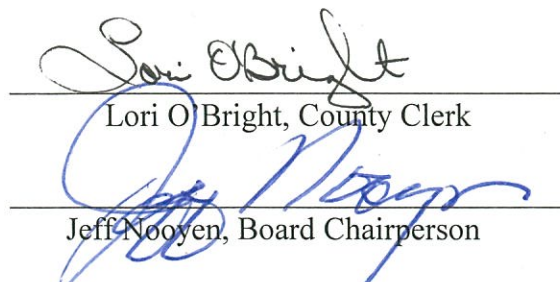 Lori O'Bright
Lori O'Bright, County Clerk
Jeff Nooyen
Jeff Nooyen, Board Chairperson